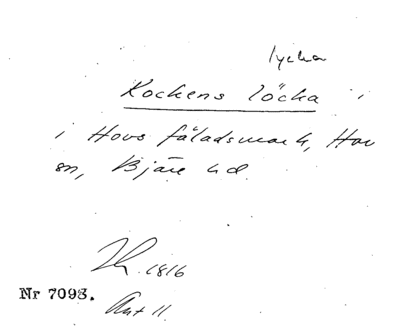 lycka
Kockens löcka
i Hovs fäladsmark, Hov
sn, Bjäre hd.
1816
Nr 7093.
Akt 11